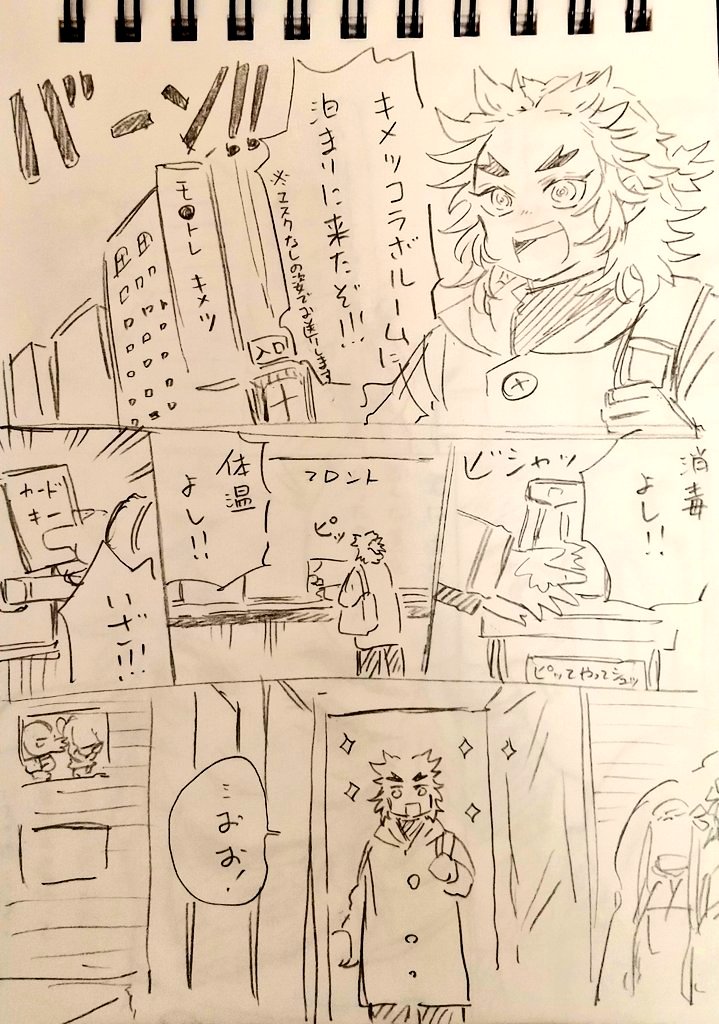 キメッコラボルームに
泊まりに来たぞ!!!
※マスクなしの姿でお送りします
バーン!!
モ●トレ キメツ
入口
消毒
よし!!
ビシャッ
ピッてやってシュッ
フロント
ピッ
体温
よし!!
カード
キー
いざ!!!
…おお!